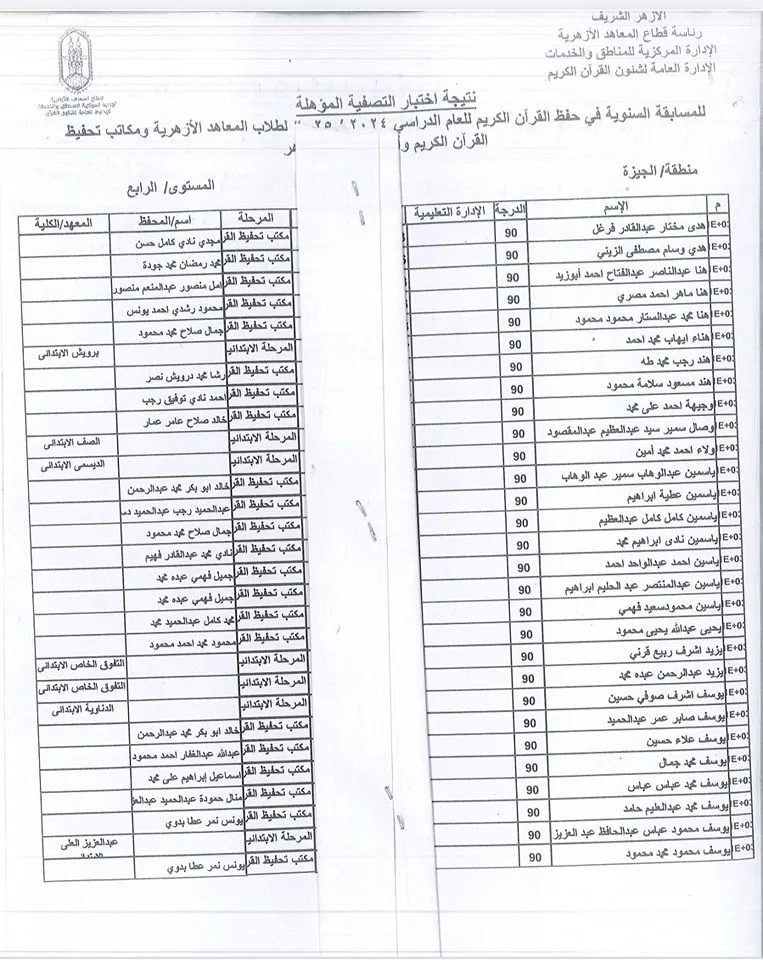 الأزهر الشريف
رئاسة قطاع المعاهد الأزهرية
الإدارة المركزية للمناطق والخدمات
الإدارة العامة لشئون القرآن الكريم
قطاع المعاهد الأزهرية
الإدارة المركزية للمناطق والخدمات
نتيجة اختبار التصفية المؤهلة
للمسابقة السنوية في حفظ القرآن الكريم للعام الدراسي ٢٠٢٤ / ٢٥ لطلاب المعاهد الأزهرية ومكاتب تحفيظ
القرآن الكريم وا هر
منطقة/ الجيزة
المستوى/ الرابع
م الإسم الدرجة الإدارة التعليمية المرحلة اسم/المحفظ المعهد/الكلية
E+0: هدى مختار عبدالقادر فرغل 90 مكتب تحفيظ القر مجدي نادي كامل حسن
E+0: هدي وسام مصطفى الزيني 90 مكتب تحفيظ القر محمد رمضان محمد جودة
E+0: هنا عبدالناصر عبدالفتاح احمد أبوزيد 90 مكتب تحفيظ القر امل منصور عبدالمنعم منصور
E+0: هنا ماهر احمد مصري 90 مكتب تحفيظ القر محمود رشدي احمد يونس
E+0: هنا محمد عبدالستار محمود محمود 90 مكتب تحفيظ القر جمال صلاح محمد محمود
E+0: هناء ايهاب محمد احمد 90 المرحلة الابتدائي برويش الابتدائى
E+0: هند رجب محمد طه 90 مكتب تحفيظ القر رشا محمد درويش نصر
E+0: هند مسعود سلامة محمود 90 مكتب تحفيظ القر احمد نادي توفيق رجب
E+0: وجيهة احمد على محمد 90 مكتب تحفيظ القر خالد صلاح عامر عمار
E+0: وصال سمير سيد عبدالعظيم عبدالمقصود 90 المرحلة الابتدائي الصف الابتدائى
E+0: ولاء احمد محمد أمين 90 المرحلة الابتدائي الديسمى الابتدائى
E+0: ياسمين عبدالوهاب سمير عبد الوهاب 90 مكتب تحفيظ القر خالد ابو بكر محمد عبدالرحمن
E+0: ياسمين عطية ابراهيم 90 مكتب تحفيظ القر عبدالحميد رجب عبدالحميد دس
E+0: ياسمين كامل كامل عبدالعظيم 90 مكتب تحفيظ القر جمال صلاح محمد محمود
E+0: ياسمين نادى ابراهيم محمد 90 مكتب تحفيظ القر نادي محمد عبدالقادر فهيم
E+0: ياسين احمد عبدالواحد احمد 90 مكتب تحفيظ القر جميل فهمي عبده محمد
E+0: ياسين عبدالمنتصر عبد الحليم ابراهيم 90 مكتب تحفيظ القر جميل فهمي عبده محمد
E+0: ياسين محمودسعيد فهمي 90 مكتب تحفيظ القر محمد كامل عبدالحميد محمد
E+0: يحيى عبدالله يحيى محمود 90 مكتب تحفيظ القر محمود محمد احمد محمود
E+0: يزيد اشرف ربيع قرني 90 المرحلة الابتدائي التفوق الخاص الابتدائى
E+0: يزيد عبدالرحمن عبده محمد 90 المرحلة الابتدائي التفوق الخاص الابتدائى
E+0: يوسف اشرف صوفي حسين 90 المرحلة الابتدائي الدناوية الابتدائى
E+0: يوسف صابر عمر عبدالحميد 90 مكتب تحفيظ القر خالد ابو بكر محمد عبدالرحمن
E+0: يوسف علاء حسين 90 مكتب تحفيظ القر عبدالله عبدالغفار احمد محمود
E+0: يوسف محمد جمال 90 مكتب تحفيظ القر اسماعيل إبراهيم على محمد
E+0: يوسف محمد عباس عباس 90 مكتب تحفيظ القر منال حمودة عبدالحميد عبدالعز
E+0: يوسف محمد عبدالعليم حامد 90 مكتب تحفيظ القر يونس نمر عطا بدوي
E+0: يوسف محمود عباس عبدالحافظ عبد العزيز 90 المرحلة الابتدائي عبدالعزيز العلى
E+0: يوسف محمود محمد محمود 90 مكتب تحفيظ القر يونس نمر عطا بدوي